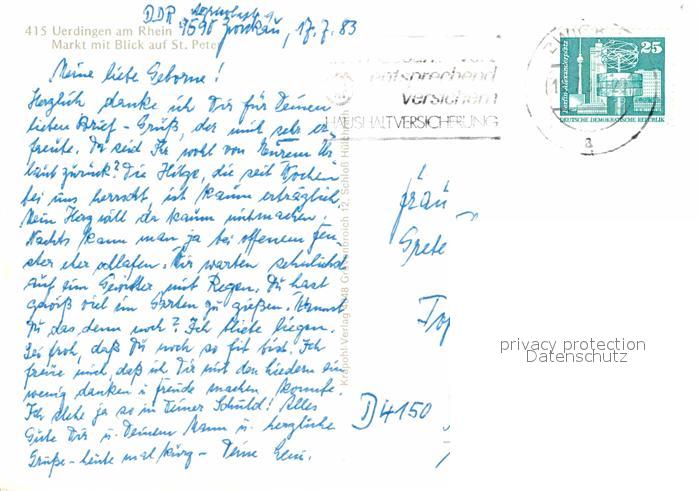 DDR
9590 Zwickau, 17.7.83
415 Uerdingen am Rhein
Markt mit Blick auf St. Pete
Meine liebe Geborne!
Herzlich danke ich Dir für Deinen
lieben Brief-Gruß, der mich sehr er-
freute. Da seid Ihr wohl von Eurem Ur
laub zurück? Die Hitze, die seit Wochen
bei uns herrscht, ist kaum erträglich.
Mein Herz will da kaum mitmachen.
Nachts kann man ja bei offenem Fen
ster eher schlafen. Wir warten sehnlichst
auf ein Gewitter mit Regen. Du hast
gewiß viel im Garten zu gießen. Kannst
Du das denn noch? Ich bliebe liegen.
Sei froh, daß Du noch so fit bist. Ich
freue mich, daß ich Dir mit den Liedern ein
wenig danken u. Freude machen konnte.
Ich stehe ja so in Deiner Schuld! Alles
Gute Dir u. Deinem Mann u. herzliche
Grüße - heute mal kurz - Deine
Krapohl-Verlag 4048 Grevenbroich 12, Schloß Hülch
entsprechend
versichern
HAUSHALTVERSICHERUNG
ZWICK
a
25
Berlin Alexanderplatz
DEUTSCHE DEMOKRATISCHE REPUBLIK
Frau
Grete
D 4150
privacy protection
Datenschutz